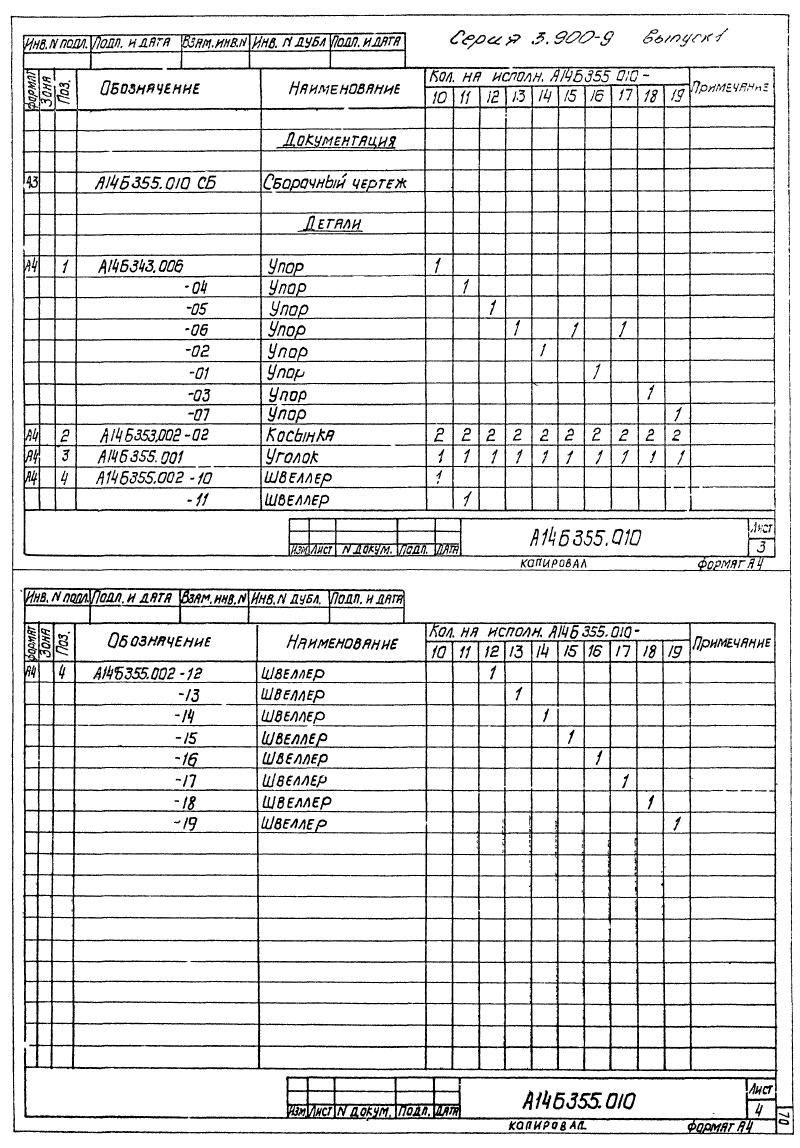 Серия 3.900-9 Выпуск 1
Инв. N подл. Подп. и дата Взам. инв. N Инв. N дубл Подп. и дата
Формат Зона Поз. Обозначение Наименование Кол. на исполн. А14Б355 010 - Примечание
10 11 12 13 14 15 16 17 18 19
Документация
А3 А14Б355.010 СБ Сборочный чертеж
Детали
А4 1 А14Б343.006 Упор 1
-04 Упор 1
-05 Упор 1
-06 Упор 1 1 1
-02 Упор 1
-01 Упор 1
-03 Упор 1
-07 Упор 1
А4 2 А14Б353.002-02 Косынка 2 2 2 2 2 2 2 2 2 2
А4 3 А14Б355.001 Уголок 1 1 1 1 1 1 1 1 1 1
А4 4 А14Б355.002-10 Швеллер 1
-11 Швеллер 1
Изм Лист N докум. Подп. Дата А14Б355.010 Лист 3
Копировал Формат А4
Инв. N подл. Подп. и дата Взам. инв. N Инв. N дубл. Подп. и дата
Формат Зона Поз. Обозначение Наименование Кол. на исполн. А14Б355.010- Примечание
10 11 12 13 14 15 16 17 18 19
А4 4 А14Б355.002-12 Швеллер 1
-13 Швеллер 1
-14 Швеллер 1
-15 Швеллер 1
-16 Швеллер 1
-17 Швеллер 1
-18 Швеллер 1
-19 Швеллер 1
Изм Лист N докум. Подп. Дата А14Б355.010 Лист 4
Копировал Формат А4
70